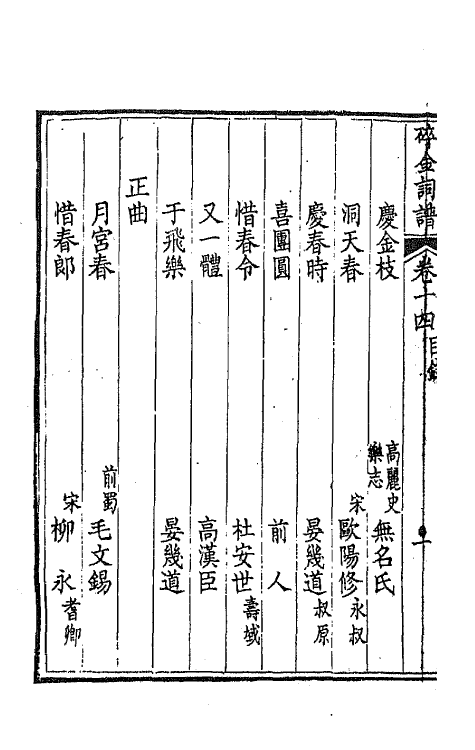 碎金詞譜　卷十四目錄　一
慶金枝　高麗史樂志　無名氏
洞天春　宋　歐陽修　永叔
慶春時　晏幾道　叔原
喜團圓　前人
惜春令　杜安世　壽域
又一體　高漢臣
于飛樂　晏幾道
正曲
月宮春　前蜀　毛文錫
惜春郎　宋　柳永　耆卿